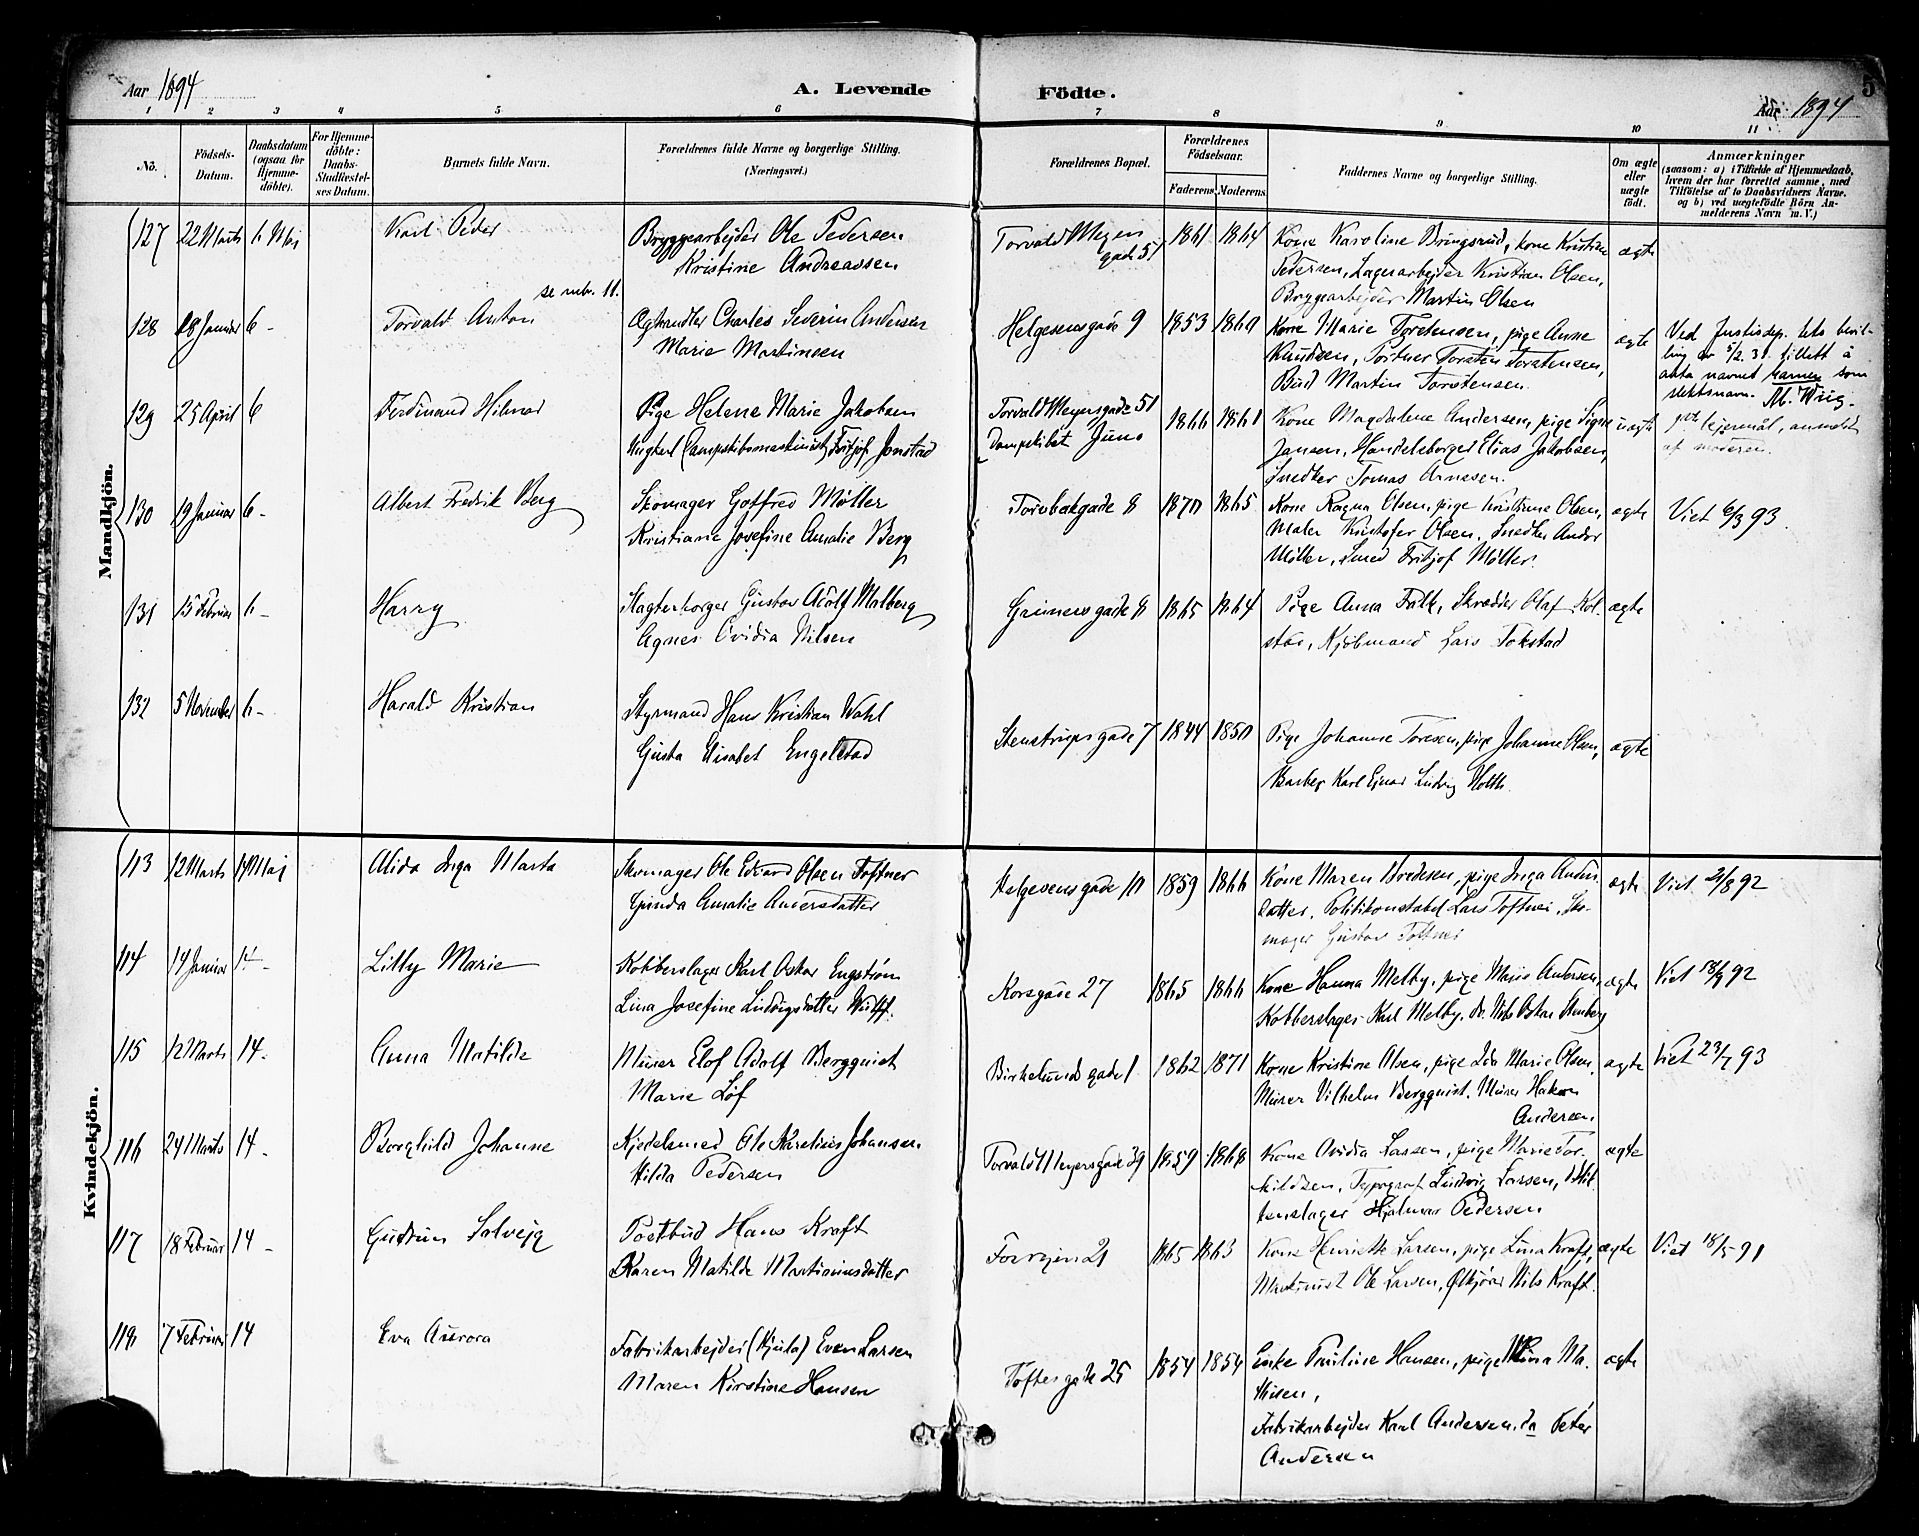 Aar 1894
A. Levende Födte.
5
Aar 1894
1 2 3 4 5 6 7 8 9 10 11
No.
Födsels-Datum.
Daabsdatum (ogsaa for Hjemme-döbte).
For Hjemme-döbte: Daabs-Stadfæstel-ses Datum.
Barnets fulde Navn.
Forældrenes fulde Navne og borgerlige Stilling.
(Næringsvei.)
Forældrenes Bopæl.
Forældrenes Födselsaar.
Faderens. Moderens.
Faddernes Navne og borgerlige Stilling.
Om ægte eller uægte födt.
Anmærkninger
(saasom: a) i Tilfælde af Hjemmedaab,
hvem der har forrettet samme, med
Tilföielse af to Daabsvidners Navne.
og b) ved uægtefödte Börn An-
melderens Navn m. V.)
Mandkjön.
127 22 Marts 6 Mai Karl Peder
Bryggearbejder Ole Pedersen
Kristine Andreassen
Torvald Meyers
gade 51
1861 1864
Kone Karoline Bringsrud, kone Kristine
Pedersen, Lagerarbejder Kristian Olsen,
Bryggearbejder Martin Olsen
ægte
se mbr. 11.
128 28 Januar 6 - Torvald Anton
Øghandler Charles Severin Andersen
Marie Martinsen
Helgesensgade 9 1853 1860
Kone Marie Torstensen, pige Anne
Knudsen, Portner Torsten Torstensen,
Bud Martin Torstensen.
ægte
Ved Justisdep.tets bevil-
ling av 5/2.31 tillatt å
anta navnet som
slektsnavn. M. Wiig.
129 25 April 6 Ferdinand Hilmar
Pige Helene Marie Jakobsen
Ungkarl Dampskibsmaskinist Fritjof Jonstad
Torvald Meyersgade 51
Dampskibet Juno
1866 1861
Kone Magdalene Andersen, pige Signe
Jansen, Handelsborger Elias Jakobsen,
Snedker Tomas Arnesen.
uægte
anmeldt
af moderen.
130 19 Januar 6 - Albert Fredrik Berg
Skomager Gotfred Møller
Kristiane Josefine Amalie Berg
Torvbakgade 8 1870 1865
Kone Ragna Olsen, pige Kristine Olsen,
Maler Kristofer Olsen, Snedker Andor
Møller, Smed Fritjof Møller.
ægte
Viet 6/3 93
131 15 Februar 6 - Harry
Slagterborger Gustav Adolf Malberg
Agnes Ovidia Nilsen
Grünersgade 8 1865 1864
Pige Anna Falk, Skrædder Olaf Kol-
stad, Kjøbmand Lars Tokstad
ægte
132 5 November 6 - Harald Kristian
Styrmand Hans Kristian Wahl
Gusta Elisabet Engelstad
Stenstrupsgade 7 1844 1850
Pige Johanne Toresen, pige Johanne Olsen,
Barber Karl Ejnar Ludvig Holth
ægte
Kvindekjön.
113 12 Marts 14 Maj Alida Inga Marta
Skomager Ole Edvard Olsen Toftner
Amalie Andersdatter
Helgesensgade 10 1859 1866
Kone Maren Bredesen, pige Inga Anders-
datter, Politikonstabel Lars Toftner, Sko-
mager Gustav Toftner
ægte
Viet 21/8 92
114 14 Januar 14 - Lilly Marie
Kobberslager Karl Oskar Engstrøm
Lina Josefine Ludvigsdatter Wulff.
Korsgade 27 1865 1866
Kone Hanna Melby, pige Maria Andersen,
Kobberslager Karl Melby, do. Nils Oskar Stenberg
ægte
Viet 18/9 92
115 12 Marts 14 - Anna Matilde
Murer Elof Adolf Bergquist
Marie Löf
Birkelundsgade 1 1862 1871
Kone Kristine Olsen, pige Ida Marie Olsen,
Murer Vilhelm Bergquist, Murer Hakon
Andersen.
ægte
Viet 23/7 93
116 24 Marts 14 - Borghild Johanne
Kjedelsmed Ole Karelius Johansen
Hilda Pedersen
Torvald Meyersgade 29 1859 1868
Kone Ovidia Larsen, pige Marie Tor-
kildsen, Typograf Ludvig Larsen,
Hjalmar Pedersen
ægte
117 18 Februar 14 - Gudrun Solvejg
Postbud Hans Kraft
Karen Matilde Martiniusdatter
21 1865 1863
Kone Henriette Larsen, pige Lina Kraft,
Maskinist Ole Larsen, Ølkjører Nils Kraft.
ægte
Viet 18/5 91
118 7 Februar 14 Eva Aurora
Fabrikarbejder (Hjula) Even Larsen
Maren Kirstine Hansen
Toftesgade 25 1854 1854
Enke Pauline Hansen, pige Mina Ma-
thisen,
Fabrikarbejder Karl Andersen, do Peter
Andersen
ægte